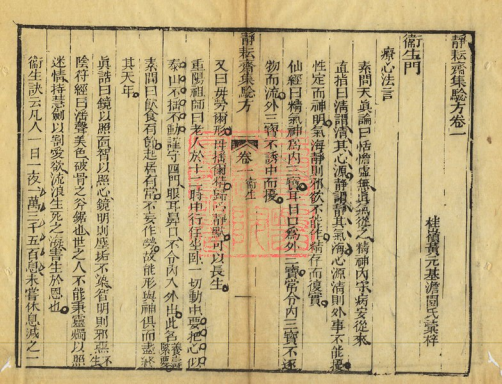 靜耘齋集驗方卷一
桂嶺黃元基澹園氏彙梓
衛生門
療心法言
素問天真論曰恬憺虛無真氣從之精神內守病安從來
直指曰清謂清其心源靜謂靜其氣海心源清則外事不能擾
性定而神明氣海靜則邪欲不能作精存而復實
仙經曰精氣神為內三寶耳目口為外三寶常令內三寶不逐
物而流外三寶不誘中而擾
靜耘齋集驗方 卷一 衛生
又曰毋勞爾形毋搖爾精歸心靜默可以長生
重陽祖師曰老人於十二時中行住坐臥一切動中要把心似
泰山不搖不動謹守四門眼耳鼻口不令內入外出此名養壽緊要
素問曰飲食有節起居有常不妄作勞故能形與神俱而盡終
其天年
真誥曰鏡以照面智以照心鏡明則塵垢不染智明則邪惡不生
陰符經曰淫聲美色破骨之斧鋸也世之人不能秉靈燭以照
迷情持慧劍以割愛欲流浪生死之海害生於恩也
衛生訣云凡人一日一夜一萬三千五百息未嘗休息減之一